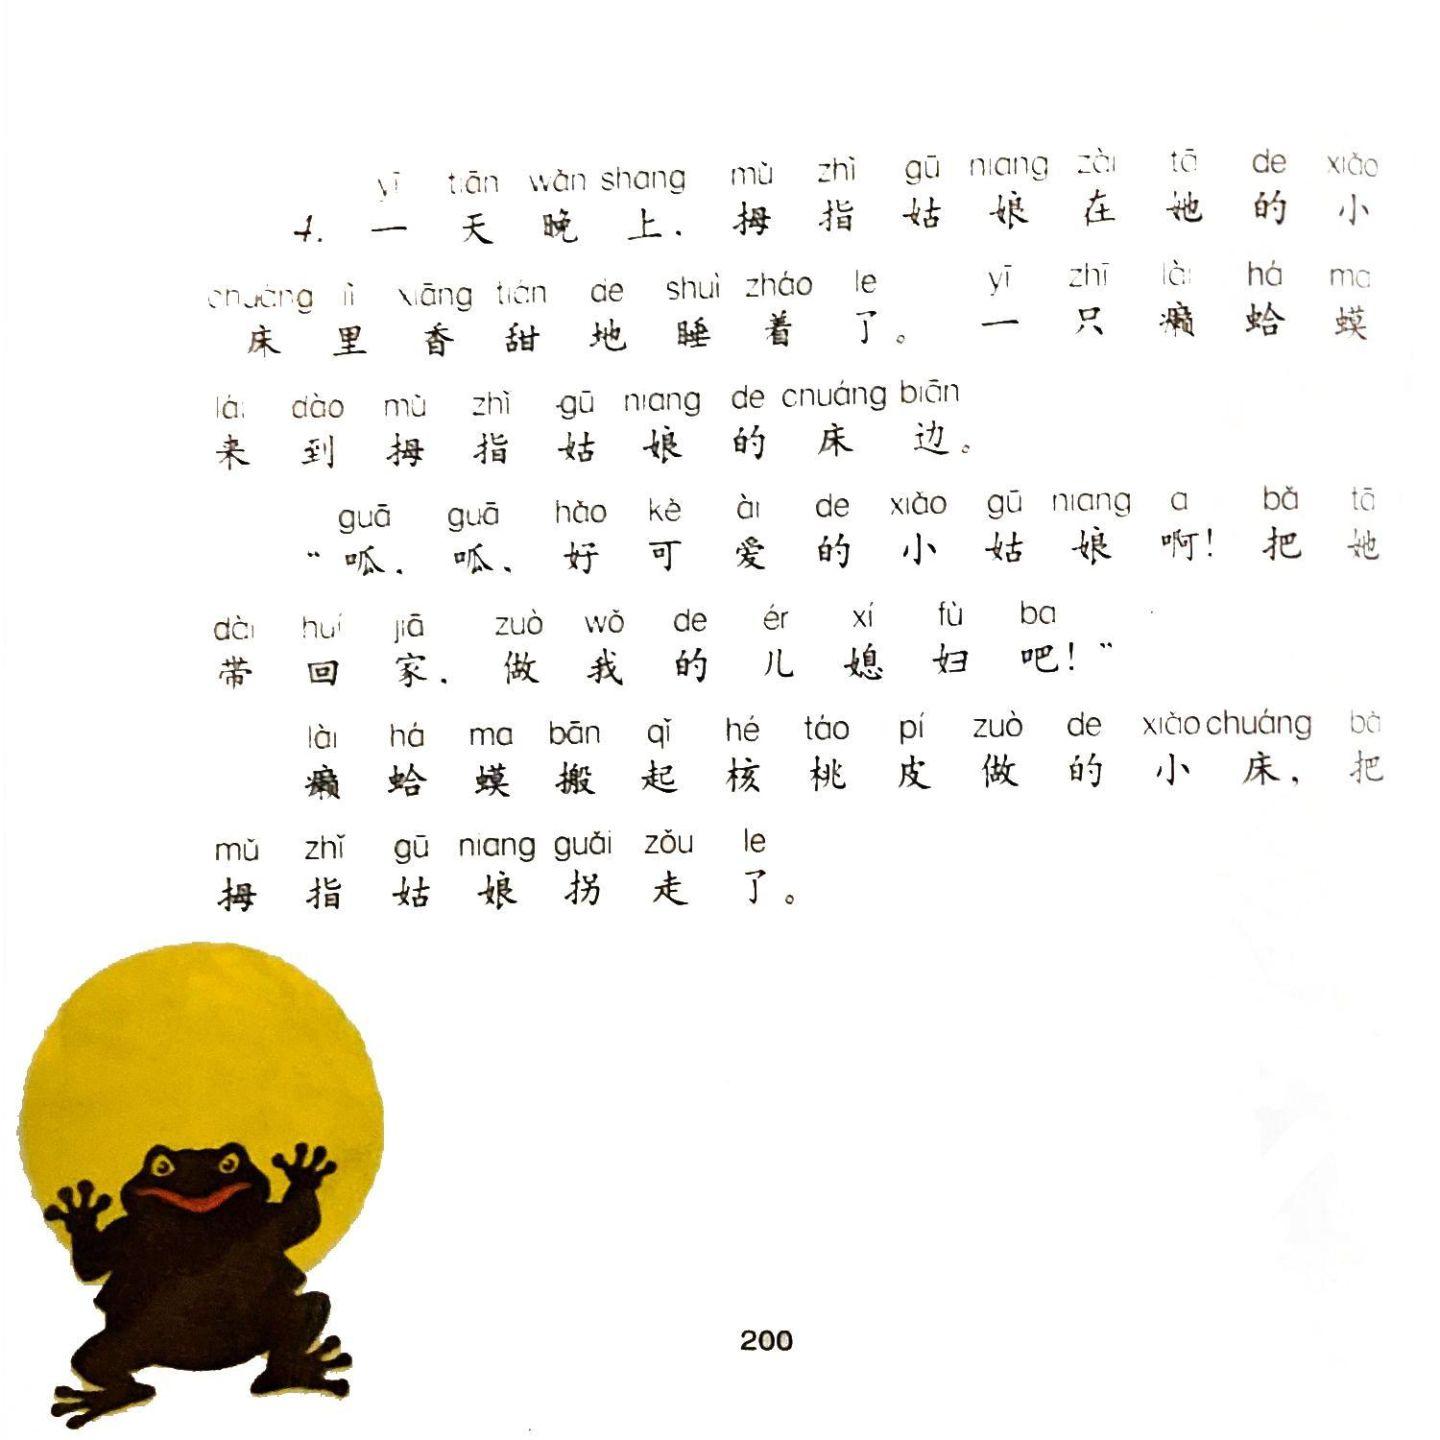 yī tiān wǎn shang mù zhì gū niang zài tā de xiǎo
4. 一天晚上，拇指姑娘在她的小
chuáng lǐ xiāng tián de shuì zháo le yī zhī lài há ma
床里香甜地睡着了。一只癞蛤蟆
lái dào mù zhì gū niang de chuáng biān
来到拇指姑娘的床边。
guā guā hǎo kě ài de xiǎo gū niang a bǎ tā
“呱，呱，好可爱的小姑娘啊！把她
dài huí jiā zuò wǒ de ér xí fù ba
带回家，做我的儿媳妇吧！”
lài há ma bān qǐ hé táo pí zuò de xiǎo chuáng bǎ
癞蛤蟆搬起核桃皮做的小床，把
mǔ zhǐ gū niang guǎi zǒu le
拇指姑娘拐走了。
200